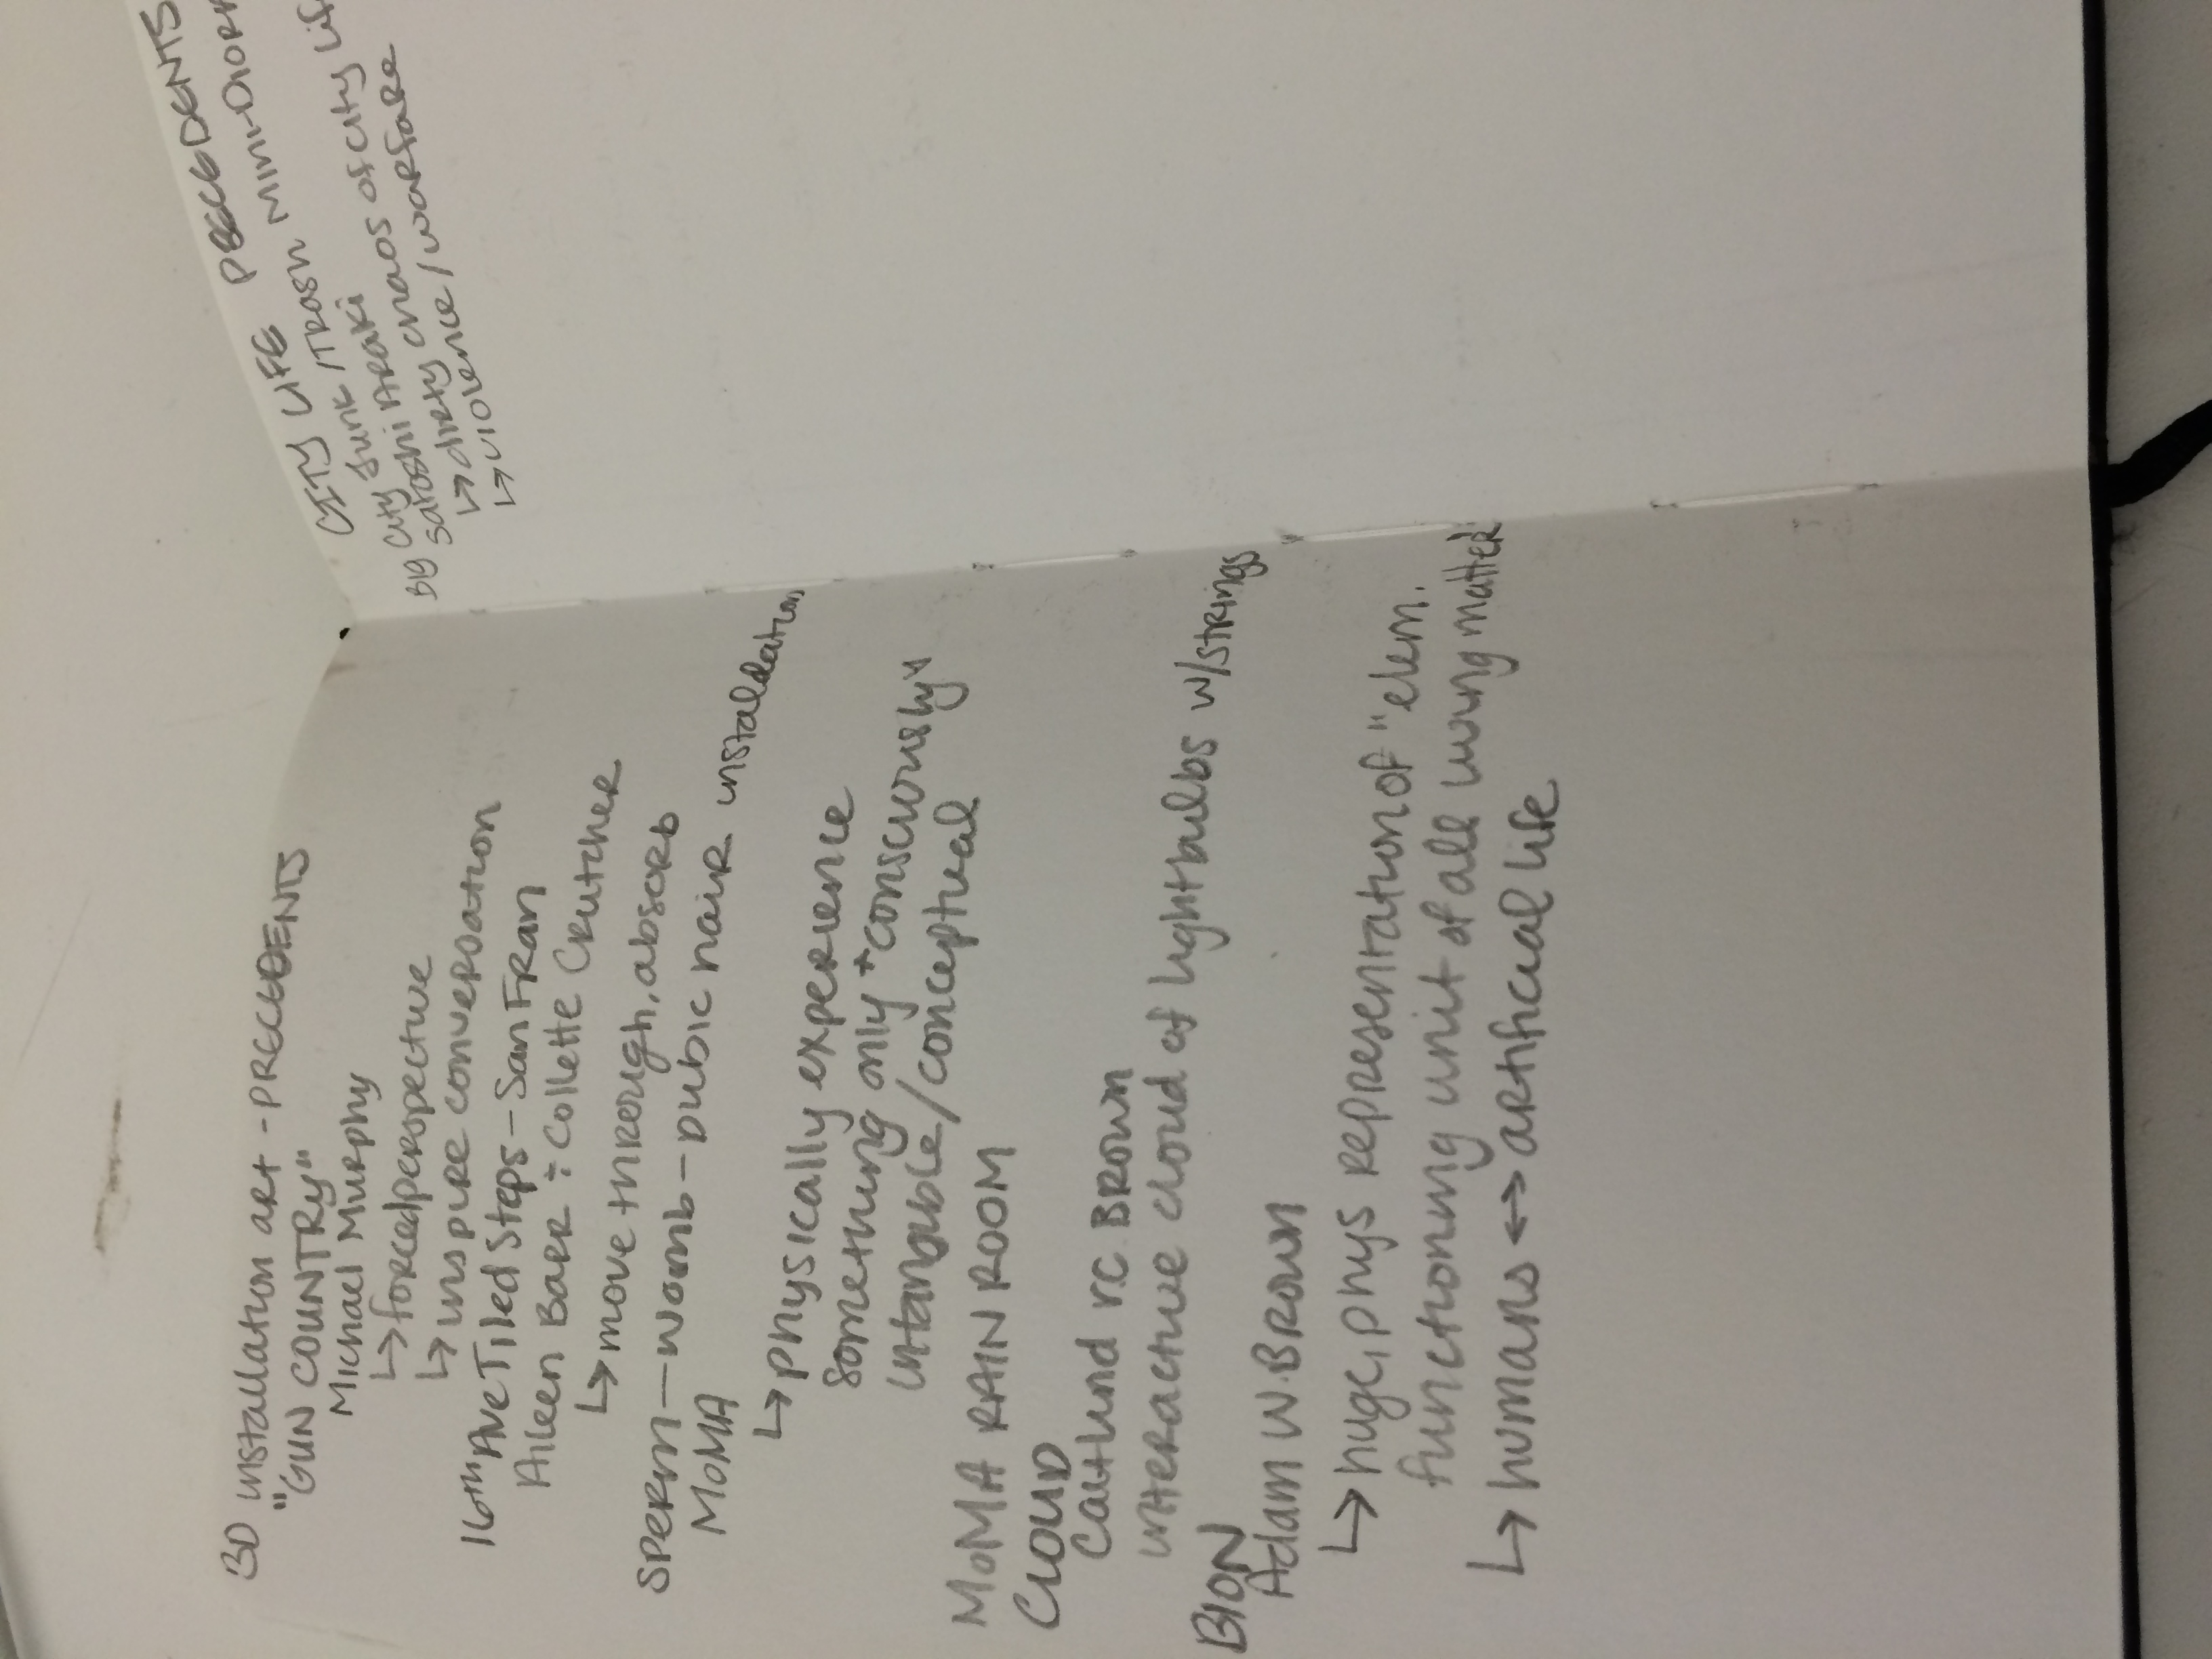 3D installation art - PRECEDENTS
"GUN COUNTRY"
Michael Murphy
↳ forced perspective
↳ inspire conversation
16th Ave Tiled Steps - San Fran
Aileen Barr ÷ Collette Crutcher
↳ move through, absorb
Sperm - Womb - pubic hair installation
MoMA
↳ physically experience
something only *consciously*
intangible/conceptual
MoMA RAIN ROOM
CLOUD
Caitlind r.c. Brown
interactive cloud of lightbulbs w/strings
BION
Adam W. Brown
↳ huge, phys representation of "elem.
functioning unit of all living matter"
↳ humans ↔ artificial life
CITY LIFE PRECEDENTS
Big City Junk/Trash Mini-Dior
Satoshi Araki
↳ dirty chaos of city lif
↳ violence/warfare